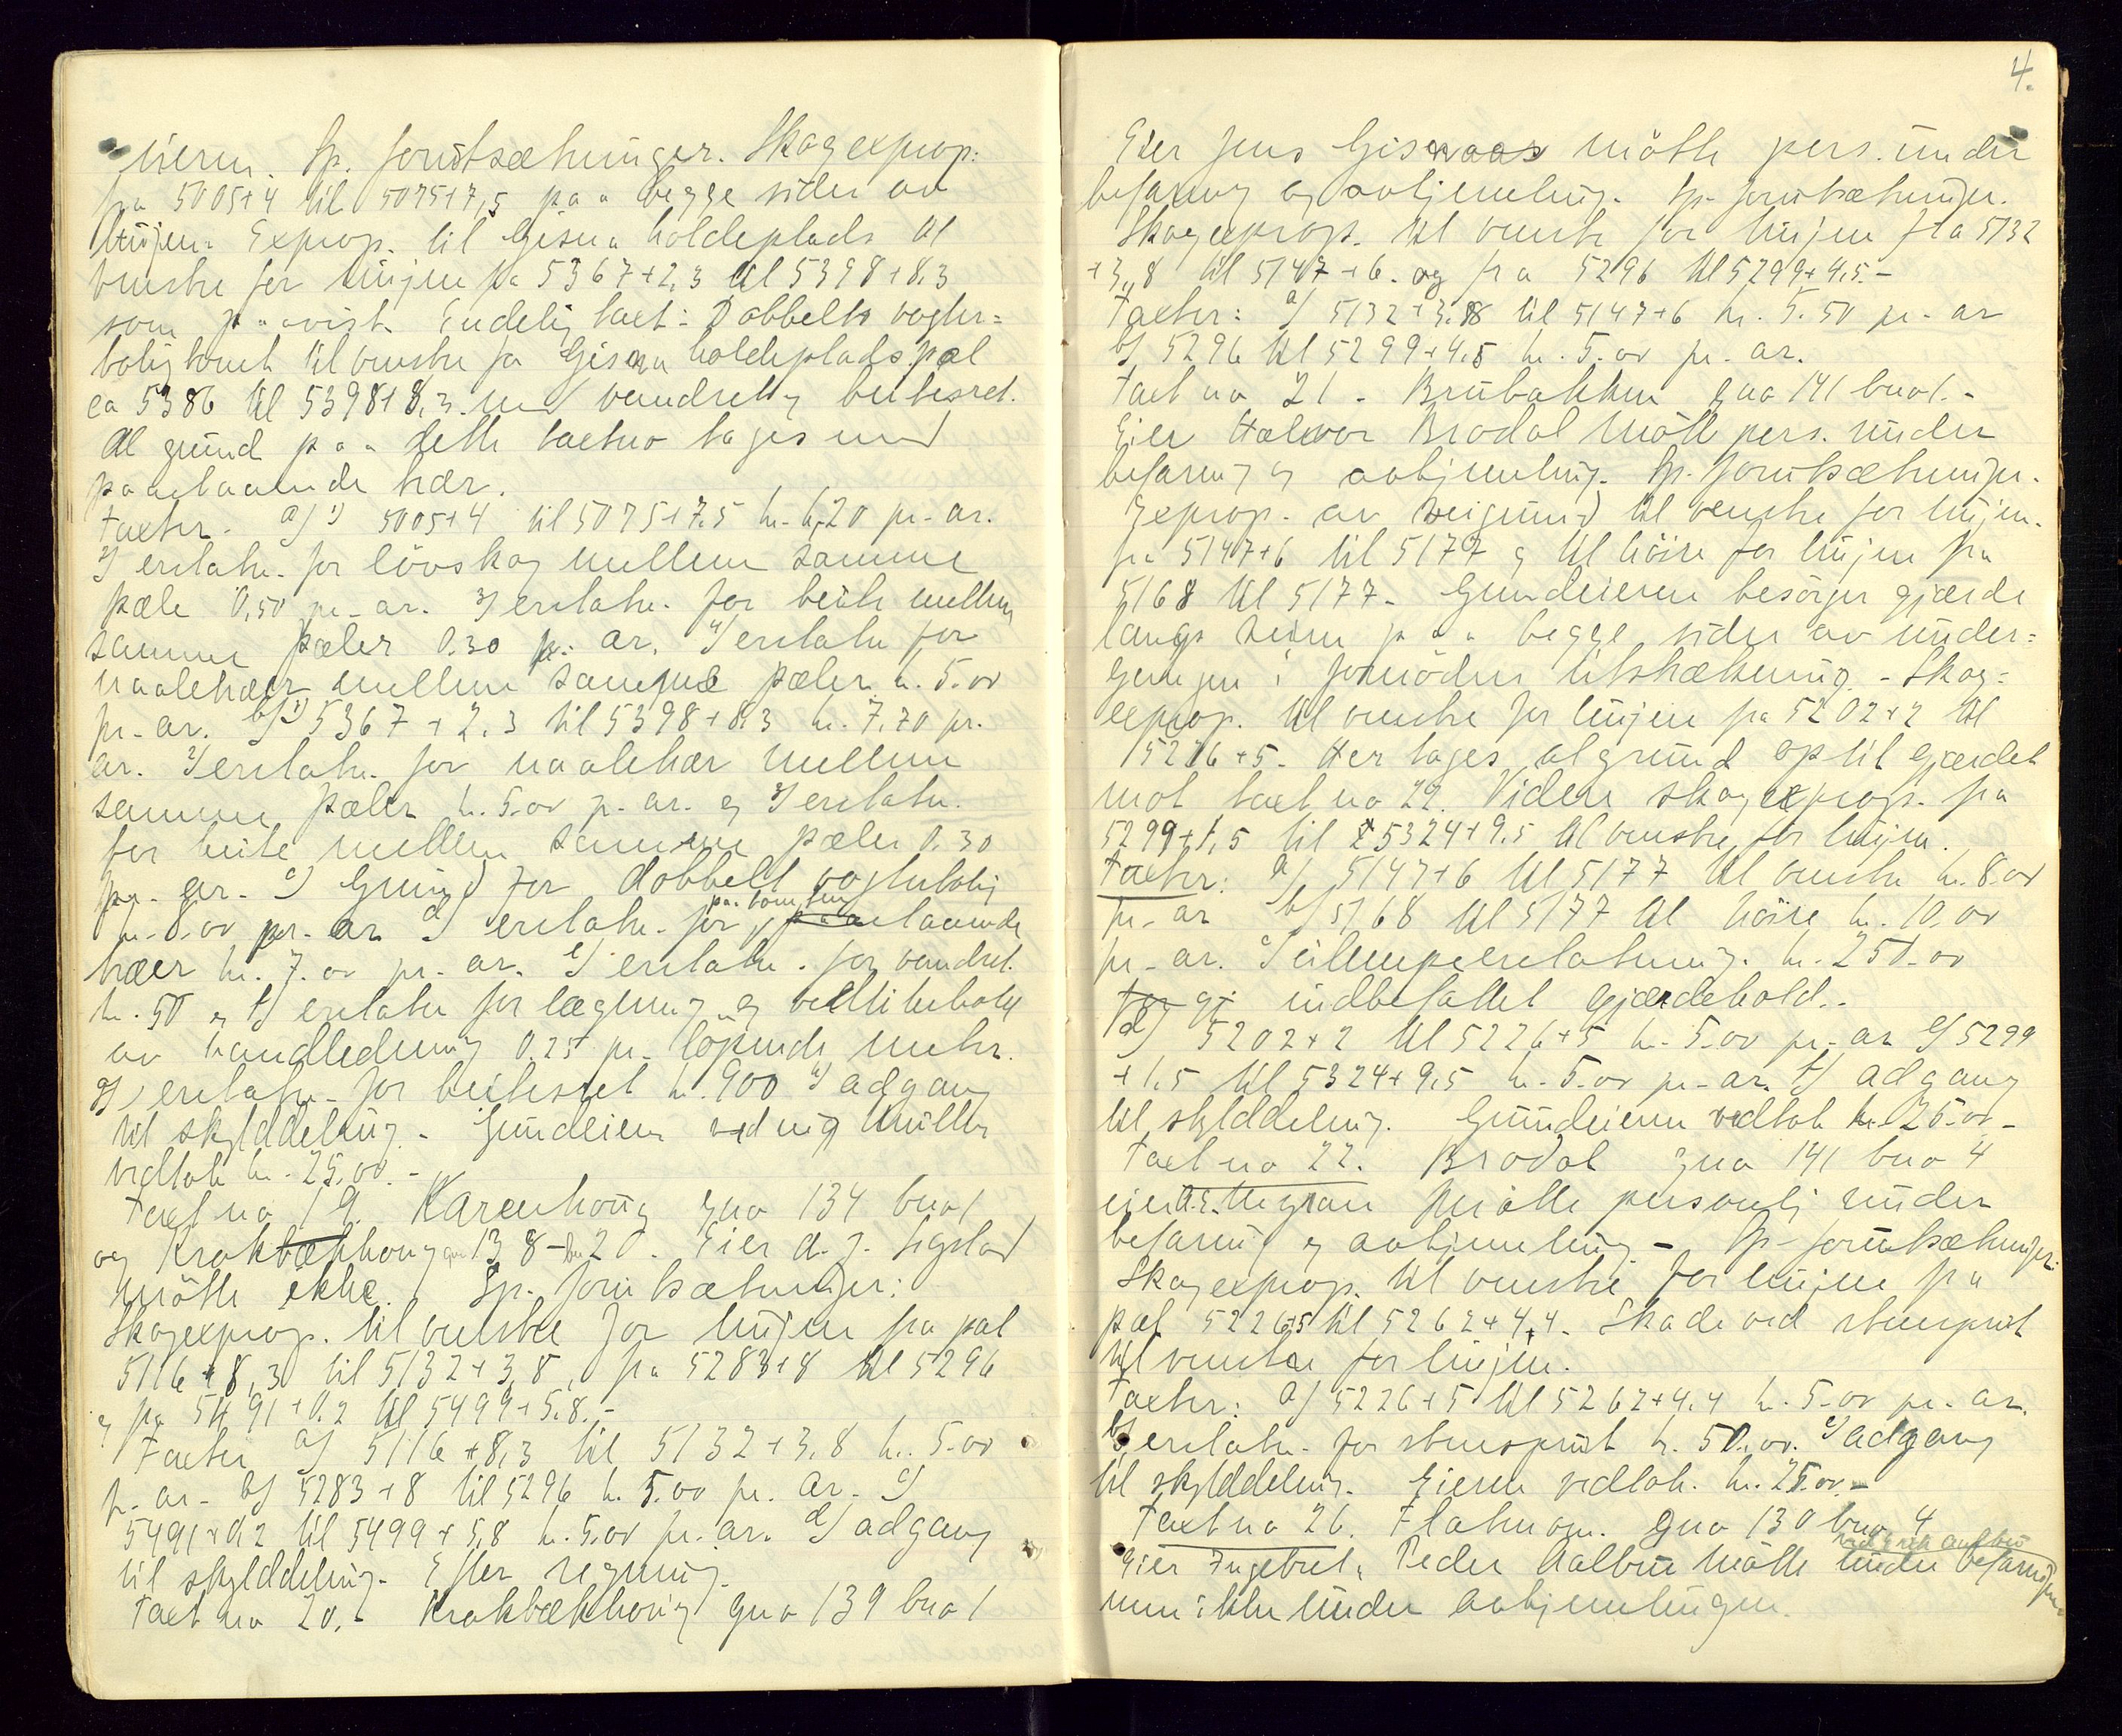 nieren. Sp. forutsætninger. Skogexprop:
fra 5005+4 til 5075+7,5 paa begge sider av
linjen. Exprop. til Gisna holdeplads til
venstre for linjen fra 5367+2,3 til 5398+8,3
som paavist. Endelig taxt: Dobbelts vogter=
boligtomt til venstre for Gisna holdeplads pæl
ca 5386 til 5398+8,3. med vandret og beitesret.
Al grund paa dette taxtno tages med
paastaaende trær.
Taxter. a/ 1) 5005+4 til 5075+7.5 kr. 6,20 pr. ar.
2) erstatn. for lövskog mellem samme
pæle 0,50 pr. ar. 3) erstatn. for beite mellem
samme pæler 0.30 pr. ar. 4) erstatn for
naaletrær mellem samme pæler kr. 5.00
pr. ar. b/ 1) 5367+2.3 til 5398+8.3 kr. 7.70 pr.
ar. 2) erstatn. for naaletrær mellem
samme pæler kr. 5.00 p. ar. og 3) erstatn.
for beite mellem samme pæler 0.30
pr. ar. c) Grund for dobbelt vogterbolig
kr. 8.00 pr. ar d) erstatn. for paa tomten paastaaende
trær kr. 7.00 pr. ar. e) erstatn. for vandret.
kr. 50 og f) erstatn for lægning og vedlikehold
av vandledning 0.25 pr. löpende meter.
g) erstatn. for beitesret kr. 900 h) adgang
til skylddeling. Grundeieren ved mig Müller
vedtok kr. 25.00.-
Taxt no 19. Karenhoug gno 134 bno 1
og Krokbækhoug gno 138 - bno 20. Eier A. J. Sigstad
mötte ikke. Sp. forutsætninger:
Skogexprop. til venstre for linjen fra pæl
5116+8,3 til 5132+3,8, fra 5283+8 til 5296
og fra 5491+0.2 til 5499+5.8.-
Taxter a) 5116+8,3 til 5132+3.8 kr. 5.00
p. ar. b) 5283+8 til 5296 kr. 5.00 pr. ar. c)
5491+0.2 til 5499+5.8 kr. 5.00 pr. ar. d) adgang
til skylddeling. Efter regning.
Taxt no 20.- Krokbækhoug gno 139 bno 1
4.
Eier Jens Gisnaas mötte pers. under
befaring og avhjemling. Sp. forutsætninger.
Skogexprop. til venstre for linjen fra 5132
+3,8 til 5147+6. og fra 5296 til 5299+4.5.-
Taxter: a) 5132+3.8 til 5147+6 kr. 5.50 pr. ar
b) 5296 til 5299+4.5 kr. 5.00 pr. ar.
Taxt no 21. Brubakken gno 141 bno 1.-
Eier Halvor Brodal mötte pers. under
befaring og avhjemling. Sp. forutsætninger.
Exprop. av veigrund til venstre for linjen.
fra 5147+6 til 5177 og til höire for linjen fra
5168 til 5177. Grundeieren besörger gjærde
langs veien paa begge sider av under=
gangen i fornöden utstrækning. - Skog=
exprop. til venstre for linjen fra 5202+2 til
5226+5. Her tages al grund op til gjærdet
mot taxt no 22. Videre skogexprop. fra
5299+1,5 til 5324+9.5 til venstre for linjen.
Taxter: a) 5147+6 til 5177 til venstre kr. 8.00
pr. ar b) 5168 til 5177 til höire kr. 10.00
pr. ar. c) ulempeerstatning. kr. 250.00
for gj indbefattet gjærdehold..
d) 5202+2 til 5226+5 kr. 5.00 pr. ar e) 5299
+1.5 til 5324+9.5 kr. 5.00 pr. ar. f) adgang
til skylddeling. Grundeieren vedtok kr. 25.00-
Taxt no 22. Brodal gno 141 bno 4
eier mötte personlig under
befaring og avhjemling - Sp. forutsætninger.
Skogexprop. til venstre for linjen fra
pæl 5226+5 til 5262+4,4. Skade ved stensprut
til venstre for linjen.
Taxter: a) 5226+5 til 5262+4.4 kr. 5.00 pr. ar.
b) erstatn. for stensprut kr. 50.00. c) adgang
til skylddeling. Eieren vedtok. kr. 25.00.-
Taxt no 26. Flatmoen. gno 130 bno 4
Eier Ingebret Peder Aalbu mötte under befaringen
men ikke under avhjemlingen.